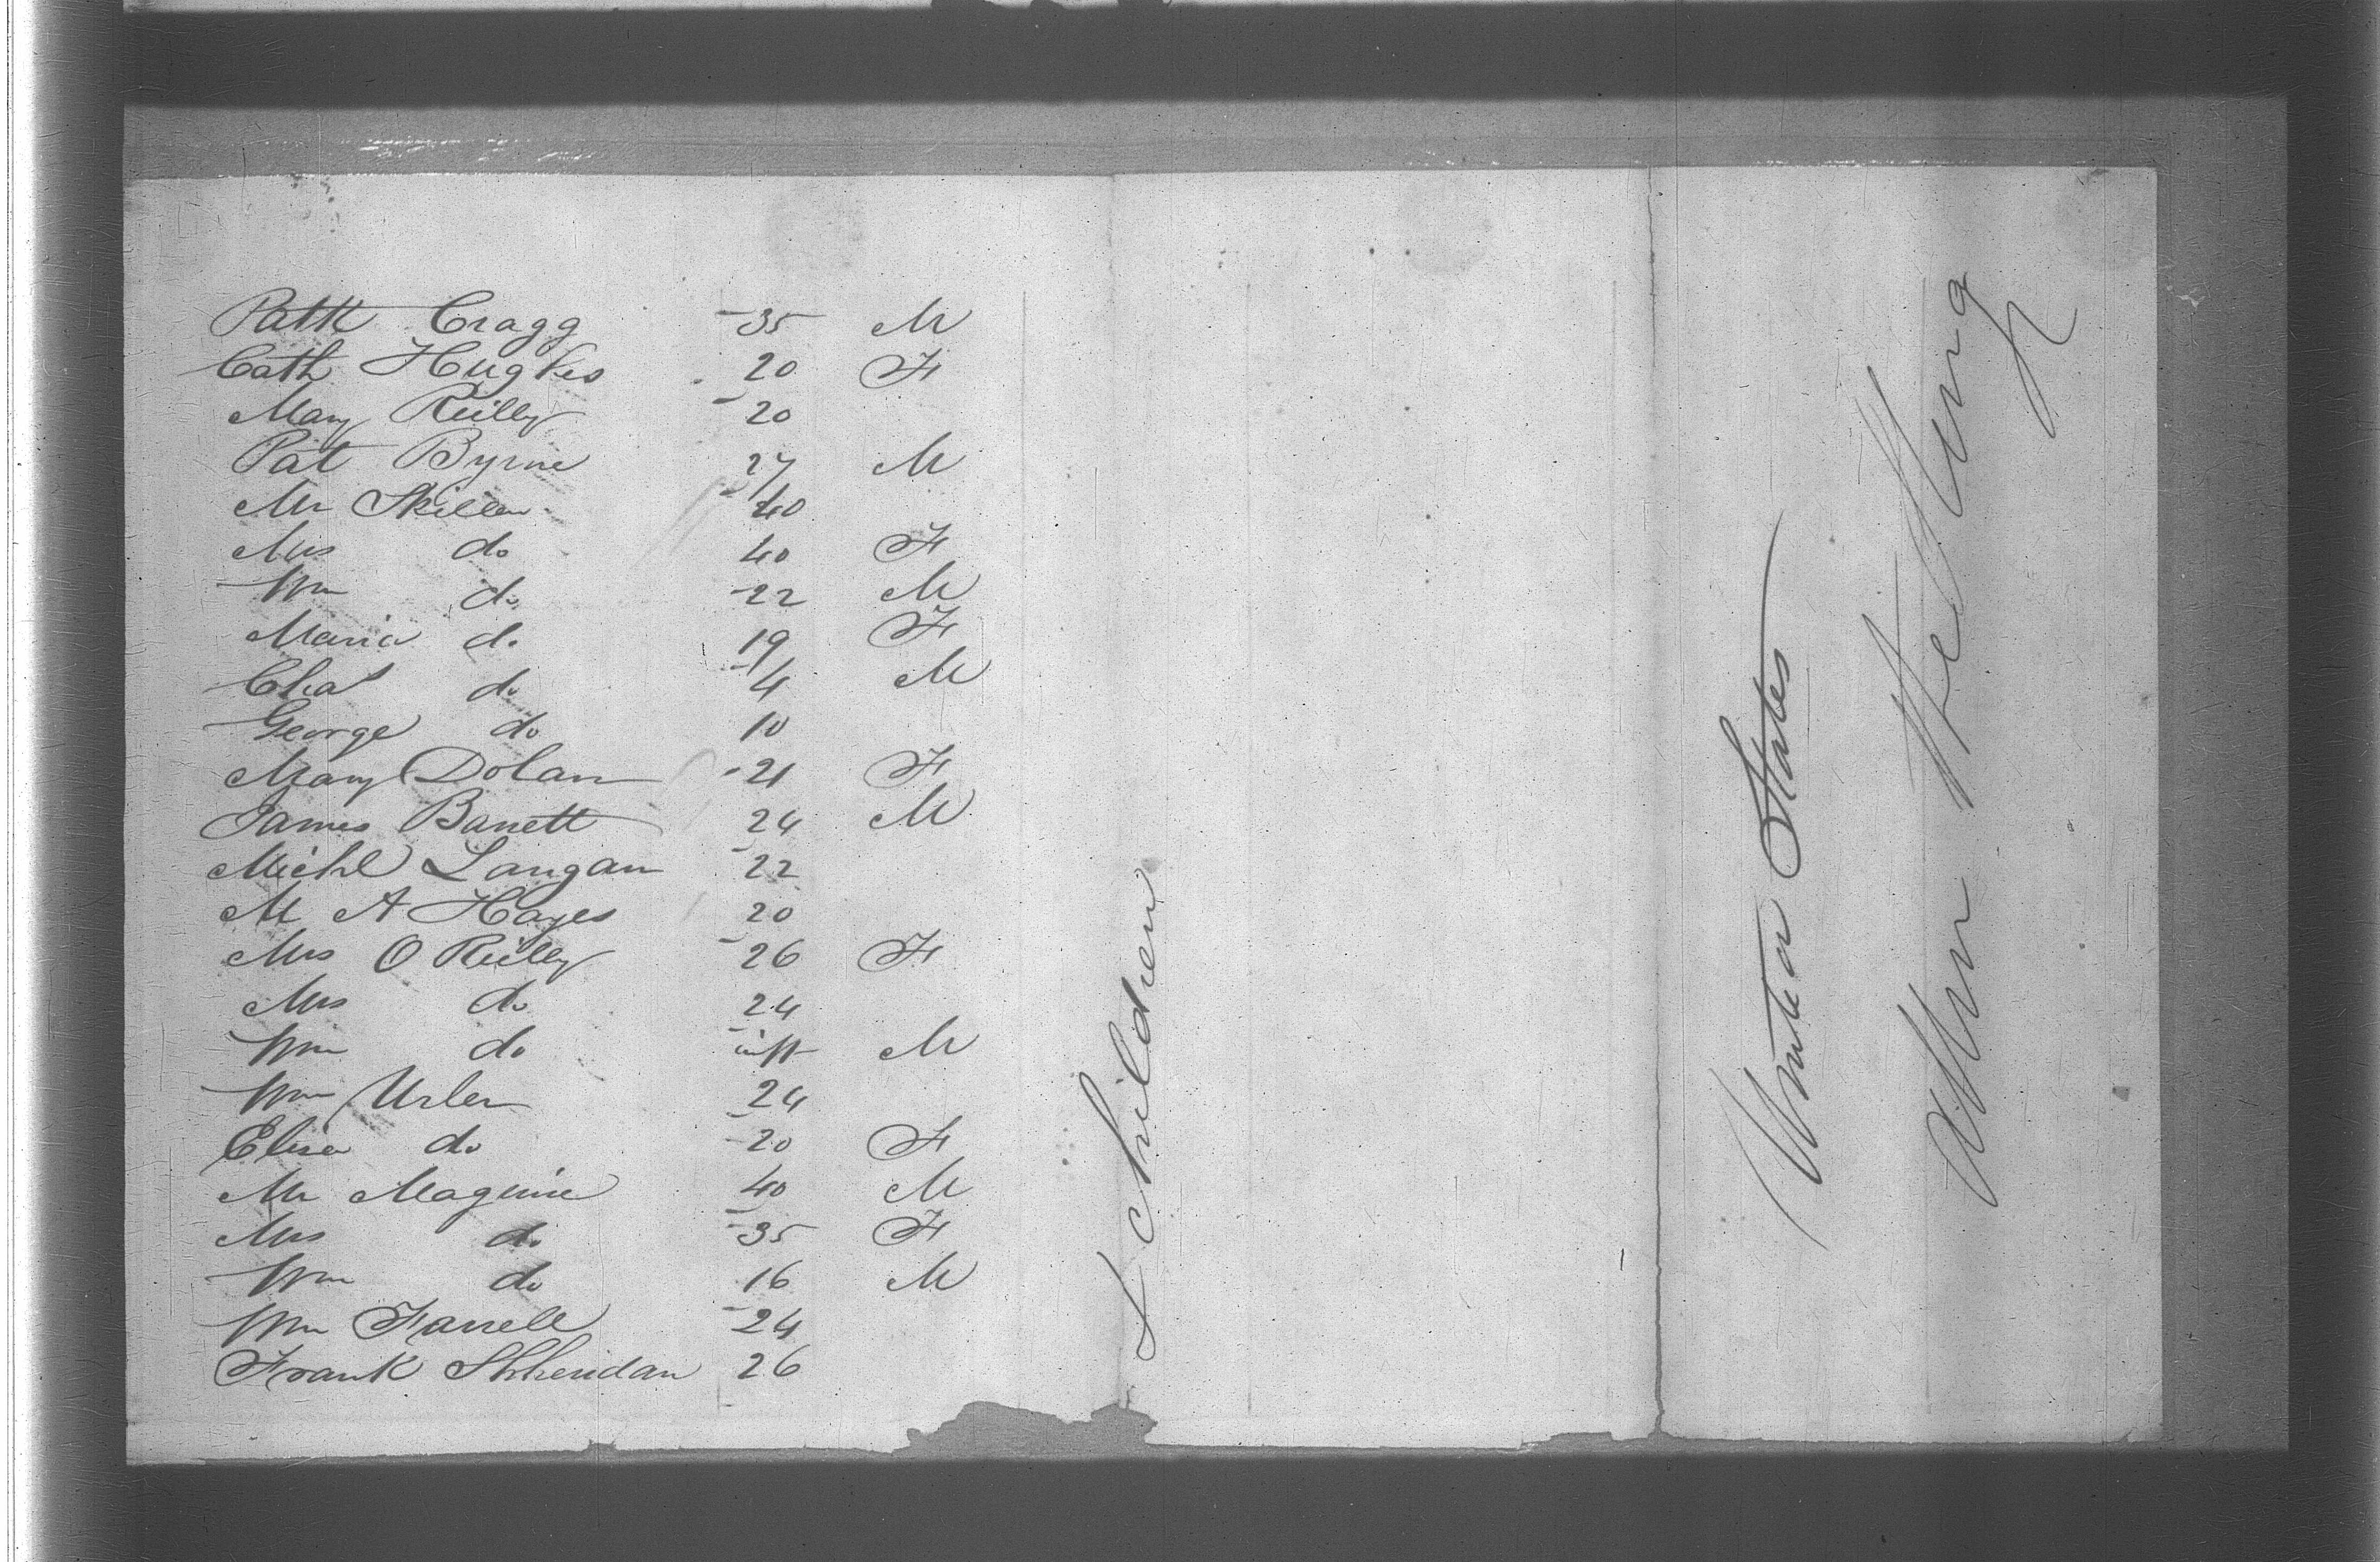 Patk Cragg 35 M
Cath Hughes 20 F
Mary Reilly 20
Pat Byrne 27 M
Mr Skillen 40
Mrs do 40 F
Wm do 22 M
Maria do 19 F
Chas do 4 M
George do 10
Mary Dolan 21 F
James Barrett 24 M
Michl Langan 22
M A Hayes 20
Mrs O Reilly 26 F
Mrs do 24
Wm do inft M
Wm Urler 24
Elisa do 20 F
Mr Maguire 40 M
Mrs do 35 F
Wm do 16 M
Wm Farrell 24
Frank Shheridan 26
children
United States
Wm